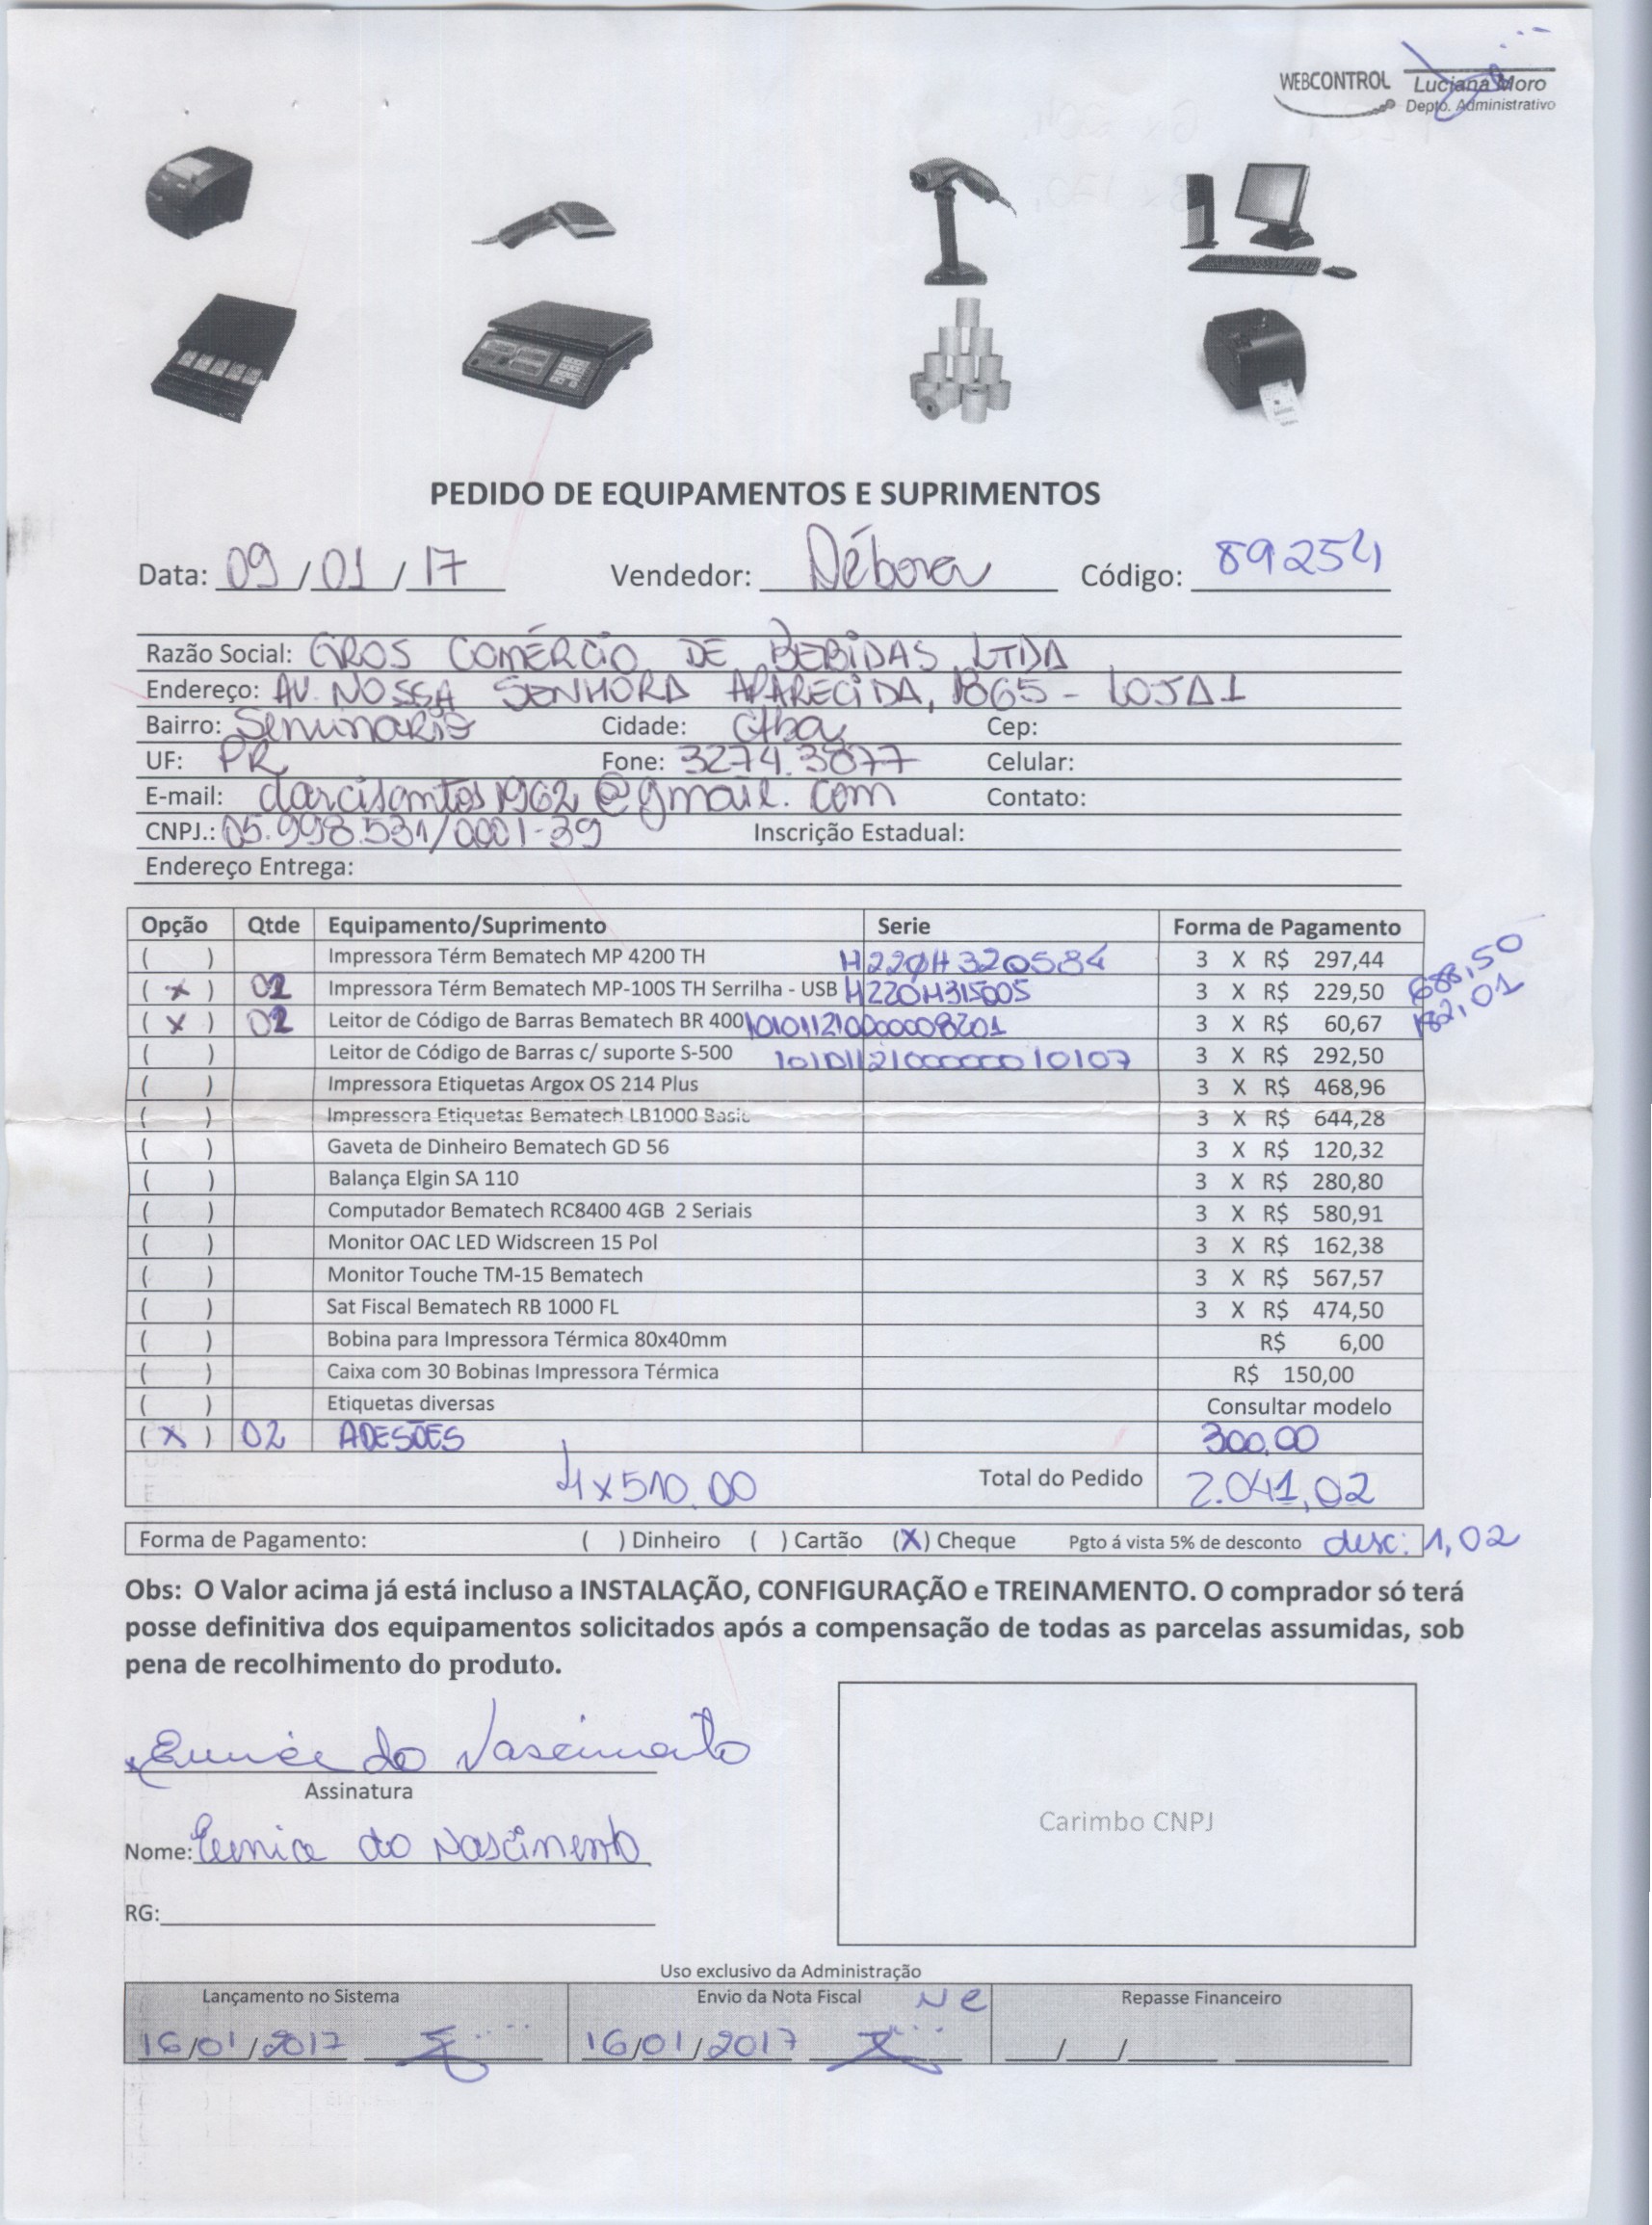 WEBCONTROL Luciana Moro
Depto. Administrativo
PEDIDO DE EQUIPAMENTOS E SUPRIMENTOS
Data: 09/01/17 Vendedor: Débora Código: 892254
Razão Social: GROS COMÉRCIO DE BEBIDAS LTDA
Endereço: AV. NOSSA SENHORA APARECIDA, 1865 - LOJA 1
Bairro: Seminario Cidade: Ctba Cep:
UF: PR Fone: 3274.3877 Celular:
E-mail: darcisantos1962@gmail.com Contato:
CNPJ.: 05.998.531/0001-39 Inscrição Estadual:
Endereço Entrega:
Opção Qtde Equipamento/Suprimento Serie Forma de Pagamento
( ) Impressora Térm Bematech MP 4200 TH H220H320584 3 X R$ 297,44
( x ) 02 Impressora Térm Bematech MP-100S TH Serrilha - USB H220H315005 3 X R$ 229,50 688,50
( x ) 02 Leitor de Código de Barras Bematech BR 400 3 X R$ 60,67 182,01
( ) Leitor de Código de Barras c/ suporte S-500 3 X R$ 292,50
( ) Impressora Etiquetas Argox OS 214 Plus 3 X R$ 468,96
( ) Impressora Etiquetas Bematech LB1000 Basic 3 X R$ 644,28
( ) Gaveta de Dinheiro Bematech GD 56 3 X R$ 120,32
( ) Balança Elgin SA 110 3 X R$ 280,80
( ) Computador Bematech RC8400 4GB 2 Seriais 3 X R$ 580,91
( ) Monitor OAC LED Widscreen 15 Pol 3 X R$ 162,38
( ) Monitor Touche TM-15 Bematech 3 X R$ 567,57
( ) Sat Fiscal Bematech RB 1000 FL 3 X R$ 474,50
( ) Bobina para Impressora Térmica 80x40mm R$ 6,00
( ) Caixa com 30 Bobinas Impressora Térmica R$ 150,00
( ) Etiquetas diversas Consultar modelo
( x ) 02 ADESÕES 300,00
4x510,00 Total do Pedido 2.041,02
Forma de Pagamento: ( ) Dinheiro ( ) Cartão (X) Cheque Pgto á vista 5% de desconto desc: 1,02
Obs: O Valor acima já está incluso a INSTALAÇÃO, CONFIGURAÇÃO e TREINAMENTO. O comprador só terá
posse definitiva dos equipamentos solicitados após a compensação de todas as parcelas assumidas, sob
pena de recolhimento do produto.
Eunice do Nascimento
Assinatura
Nome: Eunice do Nascimento
RG:
Carimbo CNPJ
Uso exclusivo da Administração
Lançamento no Sistema Envio da Nota Fiscal Repasse Financeiro
16/01/2017 16/01/2017 / /